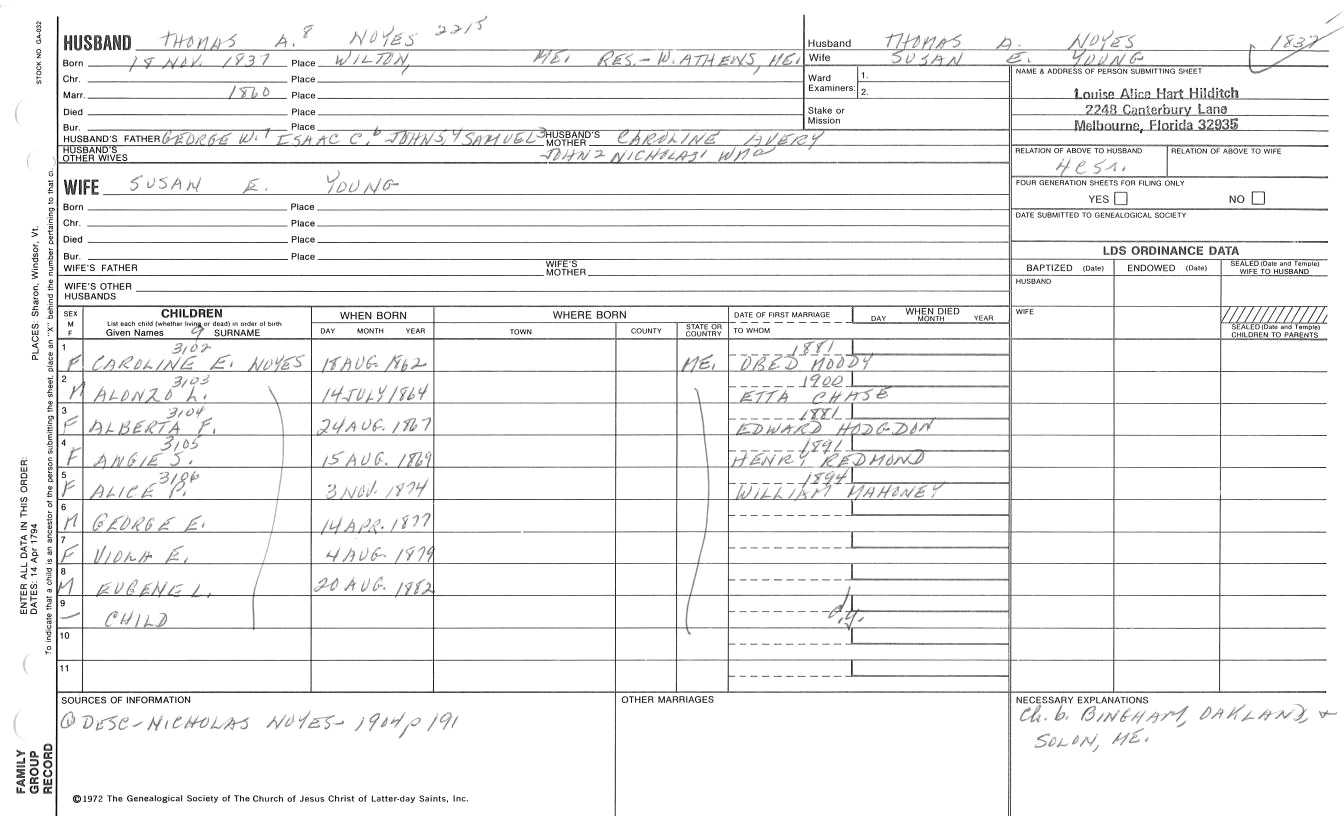 STOCK NO. GA-032
HUSBAND THOMAS A.8 NOYES 2215
Born 18 NOV. 1837 Place WILTON, ME. RES.- W. ATHENS, ME.
Chr. Place
Marr. 1860 Place
Died Place
Bur. Place
HUSBAND'S FATHER GEORGE W.7 ISAAC C.6 JOHN5,4 SAMUEL3 HUSBAND'S MOTHER CAROLINE AVERY
HUSBAND'S OTHER WIVES JOHN2 NICHOLAS1 WM
Husband THOMAS A. NOYES 1837
Wife SUSAN E. YOUNG
Ward Examiners: 1.
2.
Stake or Mission
NAME & ADDRESS OF PERSON SUBMITTING SHEET
Louise Alice Hart Hilditch
2248 Canterbury Lane
Melbourne, Florida 32935
RELATION OF ABOVE TO HUSBAND RELATION OF ABOVE TO WIFE
FOUR GENERATION SHEETS FOR FILING ONLY
YES NO
DATE SUBMITTED TO GENEALOGICAL SOCIETY
WIFE SUSAN E. YOUNG
Born Place
Chr. Place
Died Place
Bur. Place
WIFE'S FATHER WIFE'S MOTHER
WIFE'S OTHER HUSBANDS
LDS ORDINANCE DATA
BAPTIZED (Date) ENDOWED (Date) SEALED (Date and Temple) WIFE TO HUSBAND
HUSBAND
WIFE
SEALED (Date and Temple) CHILDREN TO PARENTS
SEX M F CHILDREN WHEN BORN WHERE BORN DATE OF FIRST MARRIAGE WHEN DIED
List each child (whether living or dead) in order of birth DAY MONTH YEAR
Given Names 9 SURNAME DAY MONTH YEAR TOWN COUNTY STATE OR COUNTRY TO WHOM
1 3102 1881
F CAROLINE E. NOYES 18 AUG. 1862 ME. OBED MOODY
2 3103 1900
M ALONZO L. 14 JULY 1864 ETTA CHASE
3 3104 1881
F ALBERTA F. 24 AUG. 1867 EDWARD HODGDON
4 3105 1891
F ANGIE S. 15 AUG. 1869 HENRY REDMOND
5 3106 1894
F ALICE P. 3 NOV. 1874 WILLIAM MAHONEY
6
M GEORGE E. 14 APR. 1877
7
F VIOLA E. 4 AUG. 1879
8
M EUGENE L. 20 AUG. 1882
9
– CHILD d.y.
10
11
SOURCES OF INFORMATION
① DESC-NICHOLAS NOYES-1904 p 191
OTHER MARRIAGES
NECESSARY EXPLANATIONS
Ch. b. BINGHAM, OAKLAND, +
SOLON, ME.
©1972 The Genealogical Society of The Church of Jesus Christ of Latter-day Saints, Inc.
FAMILY
GROUP
RECORD
ENTER ALL DATA IN THIS ORDER:
DATES: 14 Apr 1794
PLACES: Sharon, Windsor, Vt.
To indicate that a child is an ancestor of the person submitting the sheet, place an "X" behind the number pertaining to that